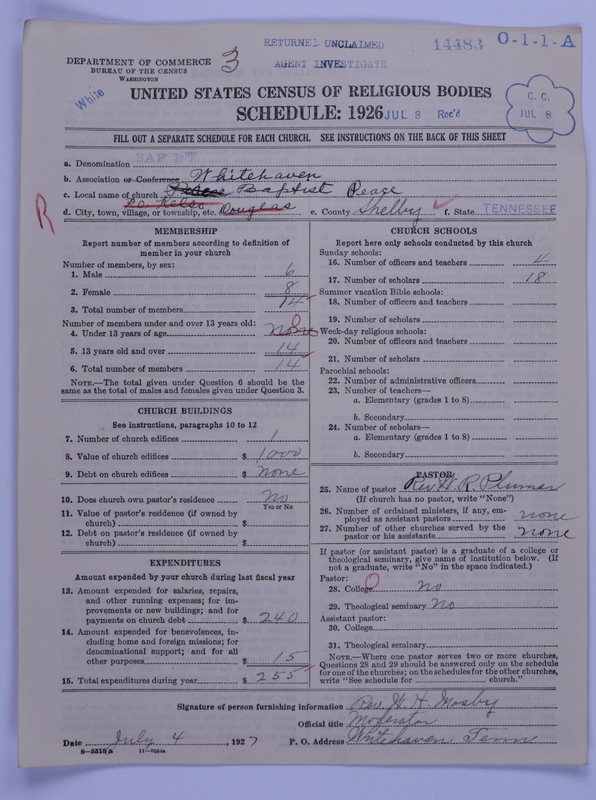 RETURNED UNCLAIMED
14483
O-1-1-A
DEPARTMENT OF COMMERCE
3
AGENT INVESTIGATE
BUREAU OF THE CENSUS
WASHINGTON
White
UNITED STATES CENSUS OF RELIGIOUS BODIES
SCHEDULE: 1926
JUL 8 Rec'd
C. C.
JUL 8
FILL OUT A SEPARATE SCHEDULE FOR EACH CHURCH. SEE INSTRUCTIONS ON THE BACK OF THIS SHEET
a. Denomination BAPTIST
b. Association or Conference Whitehaven
c. Local name of church Baptist Pease
d. City, town, village, or township, etc. Douglas e. County Shelby f. State TENNESSEE
R
MEMBERSHIP
Report number of members according to definition of
member in your church
Number of members, by sex:
1. Male 6
2. Female 8
3. Total number of members 14
Number of members under and over 13 years old:
4. Under 13 years of age None 0
5. 13 years old and over 14
6. Total number of members 14
NOTE.—The total given under Question 6 should be the
same as the total of males and females given under Question 3.
CHURCH BUILDINGS
See instructions, paragraphs 10 to 12
7. Number of church edifices 1
8. Value of church edifices $ 1000
9. Debt on church edifices $ None
10. Does church own pastor's residence No
Yes or No
11. Value of pastor's residence (if owned by
church) $
12. Debt on pastor's residence (if owned by
church) $
EXPENDITURES
Amount expended by your church during last fiscal year
13. Amount expended for salaries, repairs,
and other running expenses; for im-
provements or new buildings; and for
payments on church debt $ 240
14. Amount expended for benevolences, in-
cluding home and foreign missions; for
denominational support; and for all
other purposes $ 15
15. Total expenditures during year $ 255
CHURCH SCHOOLS
Report here only schools conducted by this church
Sunday schools:
16. Number of officers and teachers 4
17. Number of scholars 18
Summer vacation Bible schools:
18. Number of officers and teachers
19. Number of scholars
Week-day religious schools:
20. Number of officers and teachers
21. Number of scholars
Parochial schools:
22. Number of administrative officers
23. Number of teachers—
a. Elementary (grades 1 to 8)
b. Secondary
24. Number of scholars—
a. Elementary (grades 1 to 8)
b. Secondary
PASTOR
25. Name of pastor Rev. H. R. Plumer
(If church has no pastor, write "None")
26. Number of ordained ministers, if any, em-
ployed as assistant pastors none
27. Number of other churches served by the
pastor or his assistants none
If pastor (or assistant pastor) is a graduate of a college or
theological seminary, give name of institution below. (If
not a graduate, write "No" in the space indicated.)
Pastor:
28. College 0 no
29. Theological seminary No
Assistant pastor:
30. College
31. Theological seminary
NOTE.—Where one pastor serves two or more churches,
Questions 28 and 29 should be answered only on the schedule
for one of the churches; on the schedules for the other churches,
write "See schedule for church."
Signature of person furnishing information Rev. H. H. Mosby
Official title Moderator
Date July 4, 1927 P. O. Address Whitehaven Tenn
8—5518 a